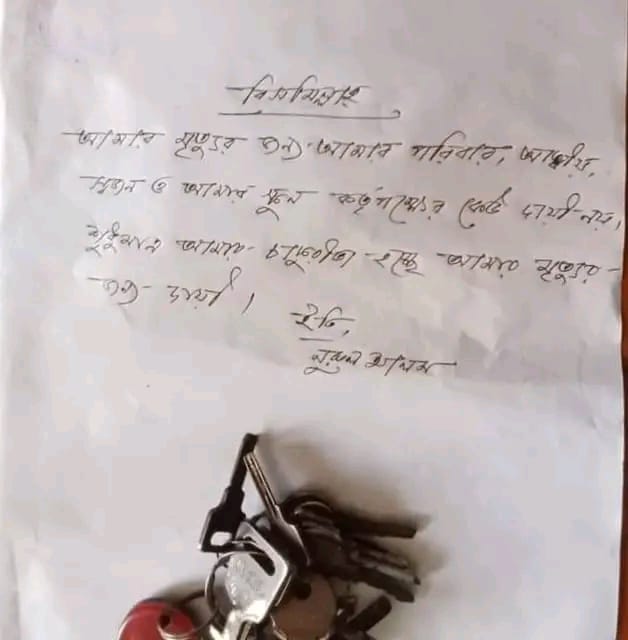 বিসমিল্লাহ
আমার মৃত্যুর জন্য আমার পরিবার, আত্মীয়,
স্বজন ও আমার স্কুল কর্তৃপক্ষের কেউ দায়ী নয়,
শুধুমাত্র আমার হচ্ছে আমার মৃত্যুর
জন্য দায়ী।
ইতি,
নুরুল আলম